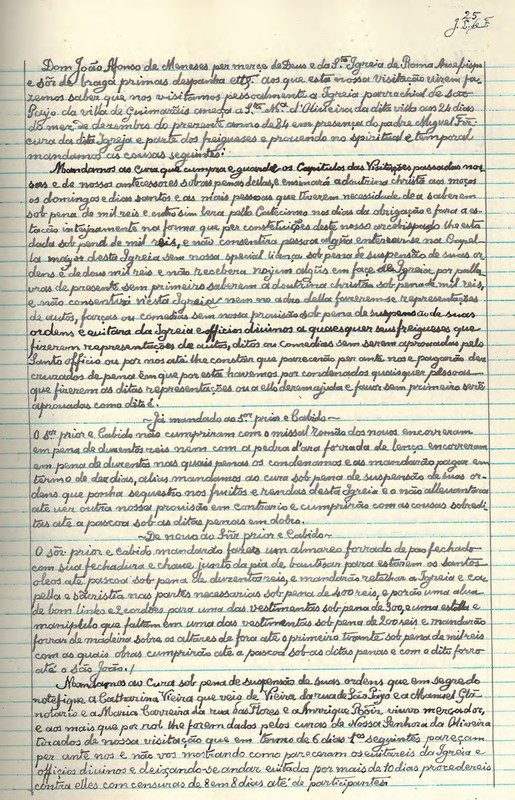 25
J. E. de F.
Dom João Afonso de Meneses per merçe de Deus e da Sta Igreia de Roma Arcebispo
e sõr de braga primas despanha etcª. aos que esta nossa visitação virem fa-
zemos saber que nos visitamos pessoalmente a Igreia parrochial de são
Paijo da villa de Guimarãis aneixa a Sta Mª d'Oliveira da dita villa aos 24 dias
do mez de dezembro do prezente anno de 84 em presença do padre Miguel
cura da dita Igreia e parte dos freigueses e provendo no spiritual e temporal
mandamos as cousas seguintes:
Mandamos ao Cura que cumpra e guarde os Capitulos das Visitações passadas nos-
sas e de nossos antecessores sob as penas dellas, e ensinará a doutrina christã aos moços
os domingos e dias santos e as mais pessoas que tiverem necessidade de a saberem
sob pena de mil reis e outro sim lera pello Catecismo nos dias da obrigação e fara a es-
tação inteiramente na forma que per constituições deste nosso arcebispado lhe esta
dada sob pena de mil reis, e não consentira pessoa algũa enterrarse na Capel-
la mayor desta Igreia sem nossa special licença sob pena de suspensão de suas or-
dens e de dous mil reis e não recebera noijvos algũs em face de Igreia por palla-
vras de presente sem primeiro saberem a doutrina christã sob pena de mil reis,
e não consentira nesta Igreia nem no adro della fazerem-se representações
de autos, farças ou comedias sem nossa provisão sob pena de suspensão de suas
ordens e evitara da Igreia e officios divinos a quaesquer seus freigueses que
fizerem representações de autos, ditos ou comedias sem serem aprovados pelo
Santo officio ou por nos até lhe constar que parecerão per ante nos e pagarão dez
cruzados de pena em que por esta havemos por condenados quaisquer pessoas
que fizerem as ditas representações ou a ello derem ajuda e favor sem primeiro serẽ
aprovados como dito é.
~ Já mandado ao Sor prior e Cabido ~
O sor prior e Cabido não cumpriram com o missal Romão dos novos encorreram
em pena de duzentos reis nem com a pedra d'ara forrada de lenço encorreram
em pena de duzentos nas quais penas os condenamos e as mandarão pagar em
termo de dez dias, alius mandamos ao cura sob pena de suspensão de suas or-
dens que ponha sequestro nos fruitos e rendas desta Igreia e o não allevantara
até ver outra nossa provisão em contrario e cumprirão com as cousas sobredi-
tas até a pascoa sob as ditas penas em dobro.
~ De novo ao Sñr prior e Cabido ~
O sõr prior e cabido mandarão fazer um almareo forrado de pao fechado
com sua fechadura e chave junto da pia de bautisar para estarem os santos
oleos até pascoa sob pena de duzentos reis, e mandarão retelhar a Igreia e ca-
pella e sacristia nas partes necessarias sob pena de 400 reis, e porão uma alva
de bom linho e 2 cordões para uma das vestimentas sob pena de 300, e uma estolla e
manipulo que faltam em uma das vestimentas sob pena de 200 reis e mandarão
forrar de madeira sobre os altares de fora até o primeiro tirante sob pena de mil reis
com as quais obras cumprirão até a pascoa sob as ditas penas e com o dito forro
até o são João. /
Mandamos ao Cura sob pena de suspensão de suas ordens que em segredo
notefique a Catharina Vieira que veio de Vieira da rua de São Paijo e a Manuel
notario e a Maria Carreira da rua das Flores e a Anrrique viuvo mercador,
e ao mais que por rol lhe forem dados pelos curas de Nossa Senhora da Oliveira
tirados de nossa visitação que em termo de 6 dias pos seguintes pareçam
per ante nos e não vos mostrando como pareceram os evitareis da Igreia e
officios divinos e deixando-se andar evitados por mais de 10 dias procedereis
contra elles com censuras de 8 em 8 dias até de participantes